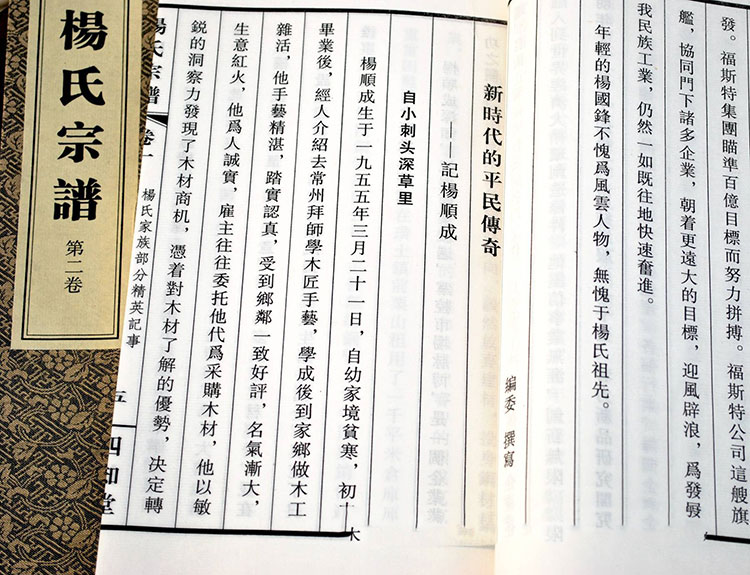 發。福斯特集團瞄準百億目標而努力拼搏。福斯特公司這艘旗
艦，協同門下諸多企業，朝着更遠大的目標，迎風辟浪，爲發
我民族工業，仍然一如既往地快速奮進。
年輕的楊國鋒不愧爲風雲人物，無愧于楊氏祖先。
編委 撰寫
新時代的平民傳奇
——記楊順成
自小刺头深草里
楊順成生于一九五五年三月二十一日，自幼家境貧寒，初
畢業後，經人介紹去常州拜師學木匠手藝，學成後到家鄉做木工
雜活，他手藝精湛，踏實認真，受到鄉鄰一致好評，名氣漸大，
生意紅火，他爲人誠實，雇主往往委托他代爲采購木材，他以敏
銳的洞察力發現了木材商机，憑着對木材了解的優勢，决定轉
楊氏宗譜 卷一 楊氏家族部分精英記事 五 四知堂
楊氏宗譜
第二卷